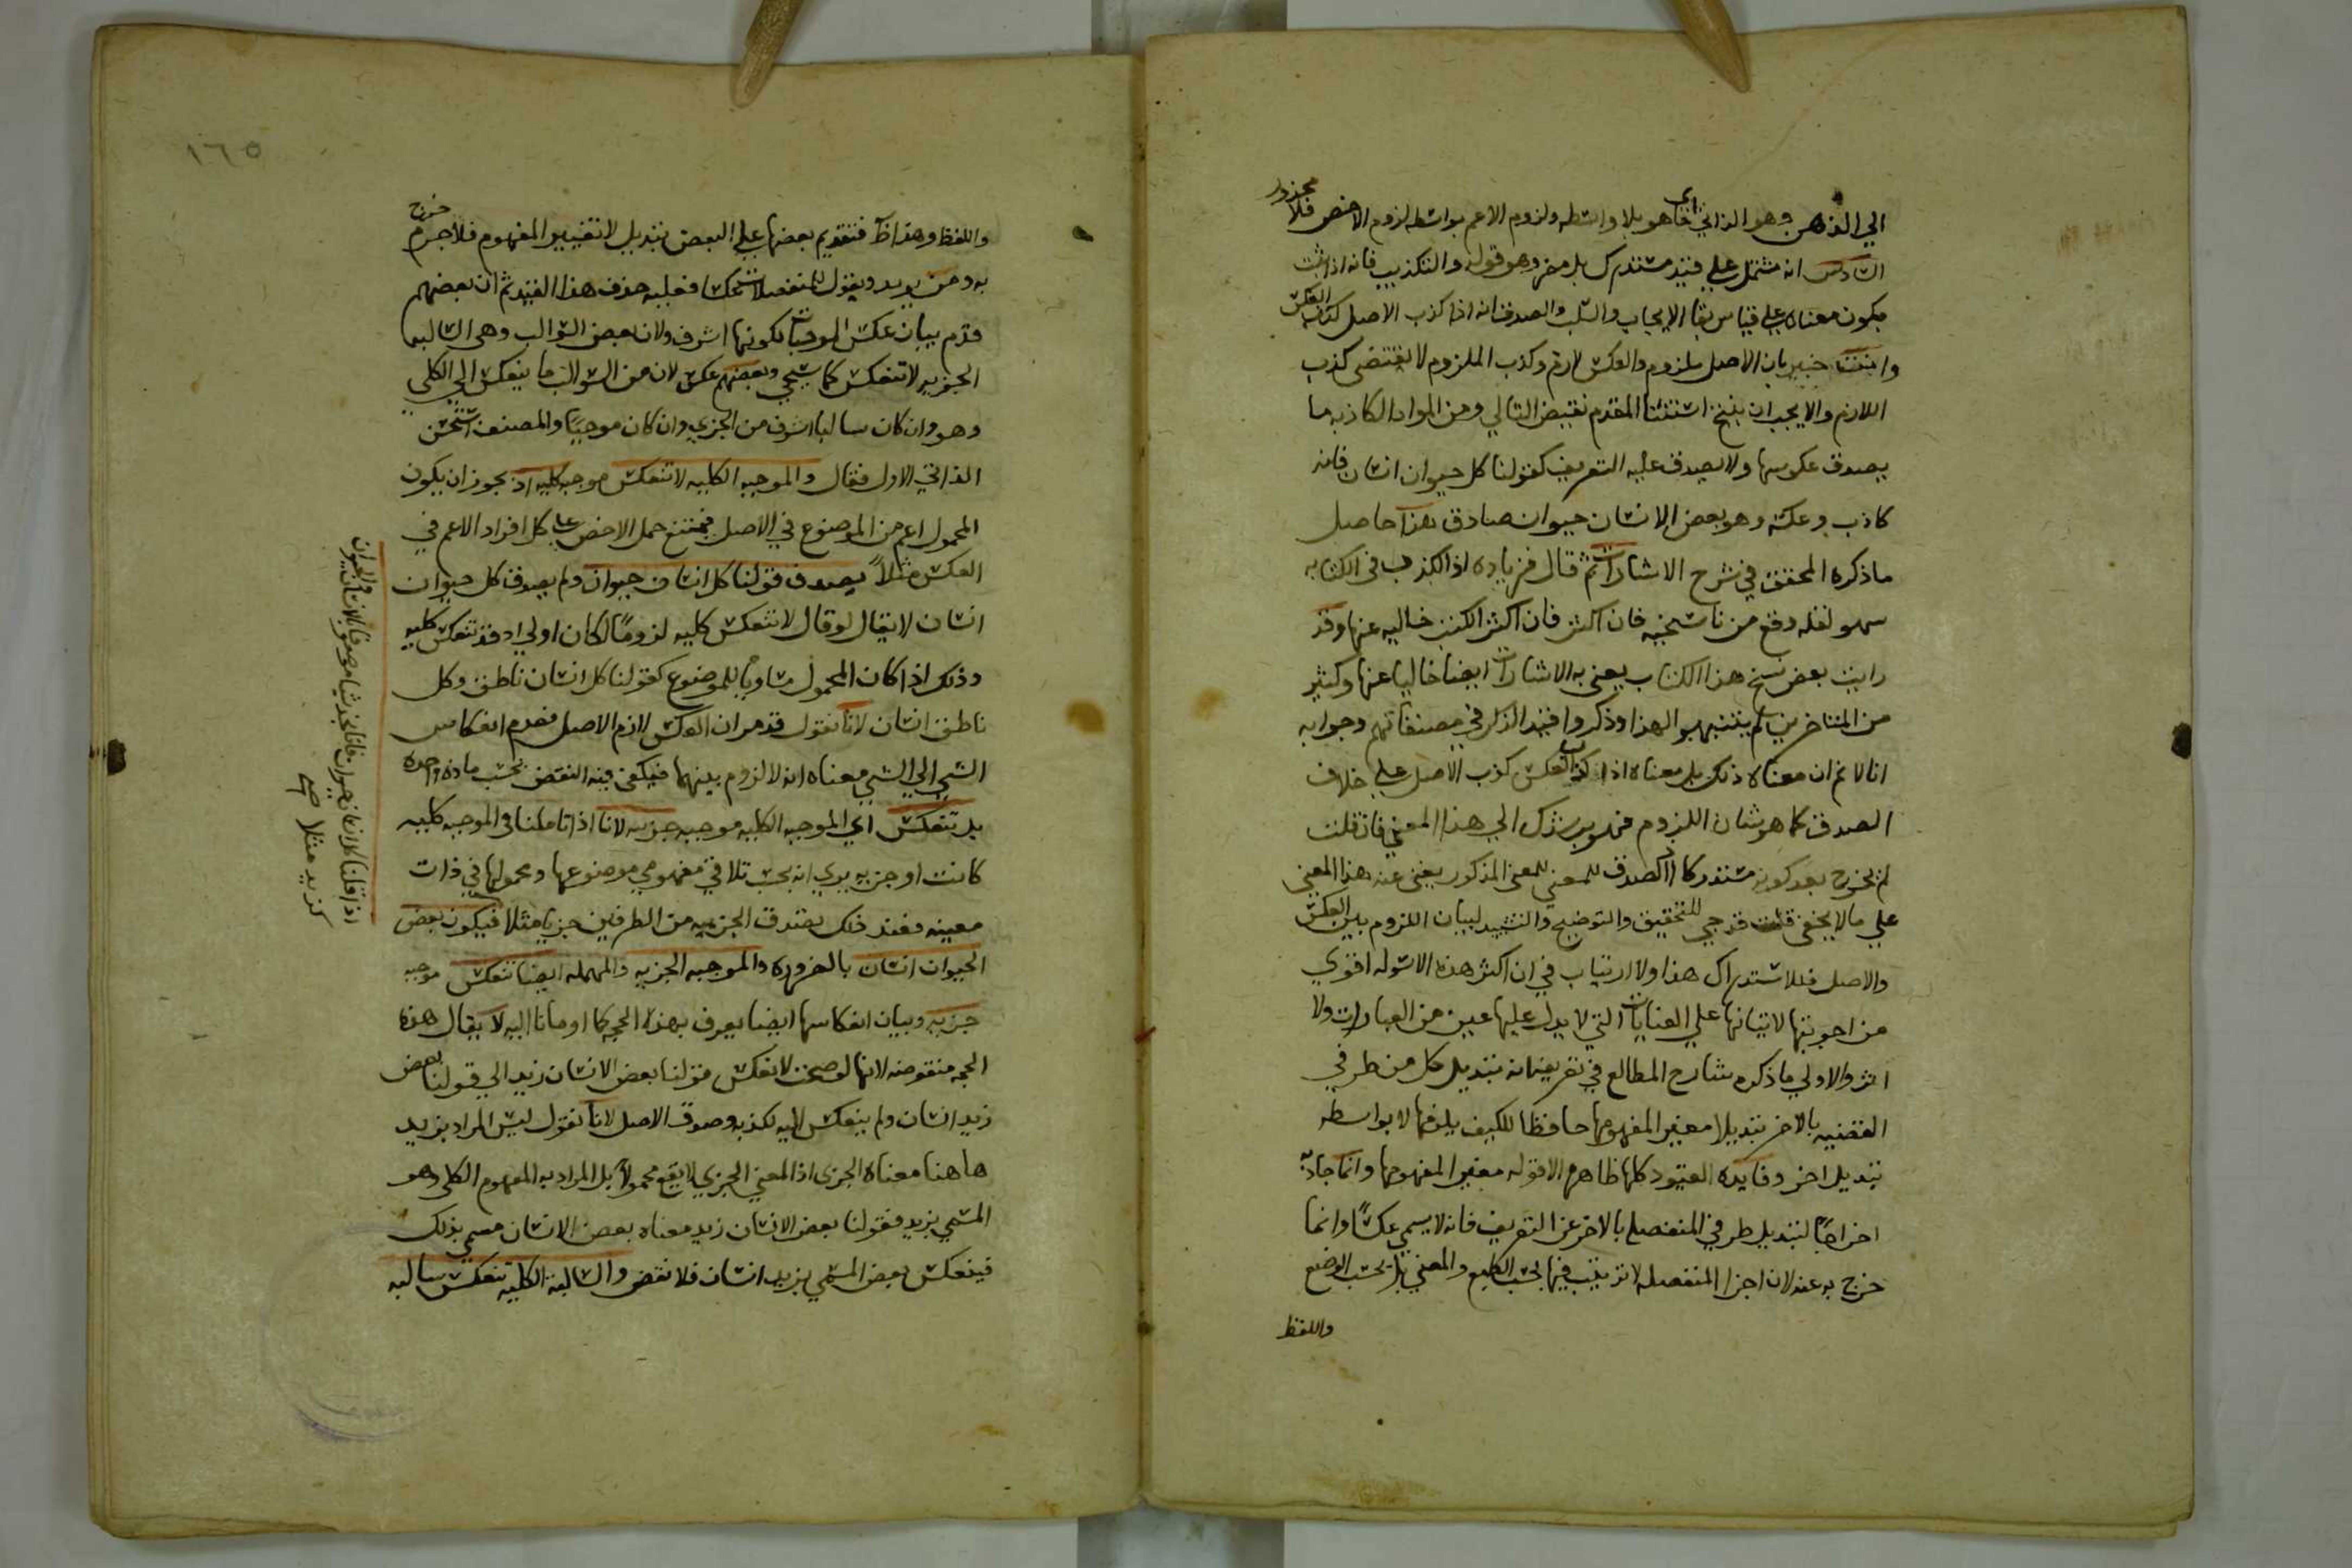 الي الذهن وهو الذاتي اي ما هو بلا واسطه ولزوم الاعم بواسطه لزوم الاخص فلا محذور
السادس انه مشتمل علي قيد مستدرك بل مضر وهو قوله والتكذيب فانه اذا ثبت
يكون معناه علي قياس بقا الايجاب والسلب والصدق انه اذا كذب الاصل كذب العكس
وانت خبير بان الاصل ملزوم والعكس لازم وكذب الملزوم لا يقتضي كذب
اللازم والا يجب ان ينتج استثنا المقدم نقيض التالي ومن المواد الكاذبه ما
يصدق عكوسها ولا يصدق عليه التعريف كقولنا كل حيوان انسان فانه
كاذب وعكسه وهو بعض الانسان حيوان صادق هذا حاصل
ماذكره المحقق في شرح الاشارات ثم قال فزياده اذا الكذب في الكتابه
سهو لعله وقع من ناسخيه فان اكثر الكتب خاليه عنها وقد
رايت بعض نسخ هذا الكتاب يعني به الاشارات ايضا خاليا عنها وكثير
من المتاخرين لم يتنبهوا لهذا وذكروا قيد الكذب في مصنفاتهم وجوابه
انا لا نم ان معناه ذلك بل معناه اذا كذب العكس كذب الاصل علي خلاف
الصدق كما هو شان اللزوم فهو يرشدك الي هذا المعني فان قلت
لم يخرج بعد كونه مستدركا اذ الصدق للمعني المذكور يغني عنه هذا المعني
علي ما لا يخفي قلت قد يجي للتحقيق والتوضيح والتشييد لبيان اللزوم بين العكس
والاصل فلا استدراك هذا ولا ارتياب في ان اكثر هذه الاسوله اقوي
من اجوبتها لابتنائها علي العنايات التي لا يدل عليها عين من العبارات ولا
اثر والاولي ماذكره شارح المطالع في تعريفه انه تبديل كل من طرفي
القضيه بالاخر تبديلا مغير المفهومها حافظا للكيف يلزمها لا بواسطه
تبديل اخر وفايده القيود كلها ظاهره الا قوله مغير المفهومها وانما جا به
اخراجا لتبديل طرفي المنفصله بالاخر عن التعريف فانه لا يسمي عكسا وانما
خرج به عنه لان اجزا المنفصله لا ترتيب فيها بحسب الطبع والمعني بل بحسب الوضع
واللفظ
١٦٥
واللفظ وهذا فتقديم بعضها علي البعض تبديل لا تغيير المفهوم فلا جرم خرج
به ومن يريد ويقول للمنفصلات عكسا فعليه حذف هذا القيد ثم ان بعضهم
قدم بيان عكس الموجبات لكونها اشرف ولان بعض السوالب وهي السالبه
الجزيه لا تنعكس كما سيجي وبعضهم عكس لان من السوالب ما ينعكس الي الكلي
وهو وان كان سالبا اشرف من الجزي وان كان موجبا والمصنف استحسن
الاول فقال والموجبه الكليه لا تنعكس موجبه كليه اذ يجوز ان يكون
المحمول اعم من الموضوع في الاصل فيمتنع حمل الاخص علي كل افراد الاعم في
العكس مثلا يصدق قولنا كل انسان حيوان ولم يصدق كل حيوان
انسان لا يقال لو قال لا تنعكس كليه لزوما لكان اولي اذ قد تنعكس كليه
وذلك اذا كان المحمول مساويا للموضوع كقولنا كل انسان ناطق وكل
ناطق انسان لانا نقول قد مر ان العكس لازم الاصل فعدم انعكاس
الشي الي الشي معناه انه لا لزوم بينهما فيكفي فيه النقض بحسب ماده واحده
بل تنعكس اي الموجبه الكليه موجبه جزيه لانا اذا تاملنا في الموجبه كليه
كانت او جزيه يدري انه يجب تلاقي مفهومي موضوعها ومحمولها في ذات
معينه فعند ذلك يصدق الجزيه من الطرفين جزيا مثلا فيكون بعض
الحيوان انسان بالضروره والموجبه الجزيه والمهمله ايضا تنعكس موجبه
جزيه وبيان انعكاسها ايضا يعرف بهذه الحجه كما اومانا اليه لا يقال هذه
الحجه منقوضه لانها لو صحت لانعكس قولنا بعض الانسان زيد الي قولنا بعض
زيد انسان ولم ينعكس اليه لكذبه وصدق الاصل لانا نقول ليس المراد بزيد
هاهنا معناه الجزي اذ المعني الجزي لا يقع محمولا بل المراد به المفهوم الكلي وهو
المسمي بزيد فقولنا بعض الانسان زيد معناه بعض الانسان مسمي بذلك
فينعكس بعض المسمي بزيد انسان فلا نقض والسالبه الكليه تنعكس سالبه
اذا قلنا كل انسان حيوان فانا نجد شيا موصوفا بالانسان والحيوان
كزيد مثلا صح